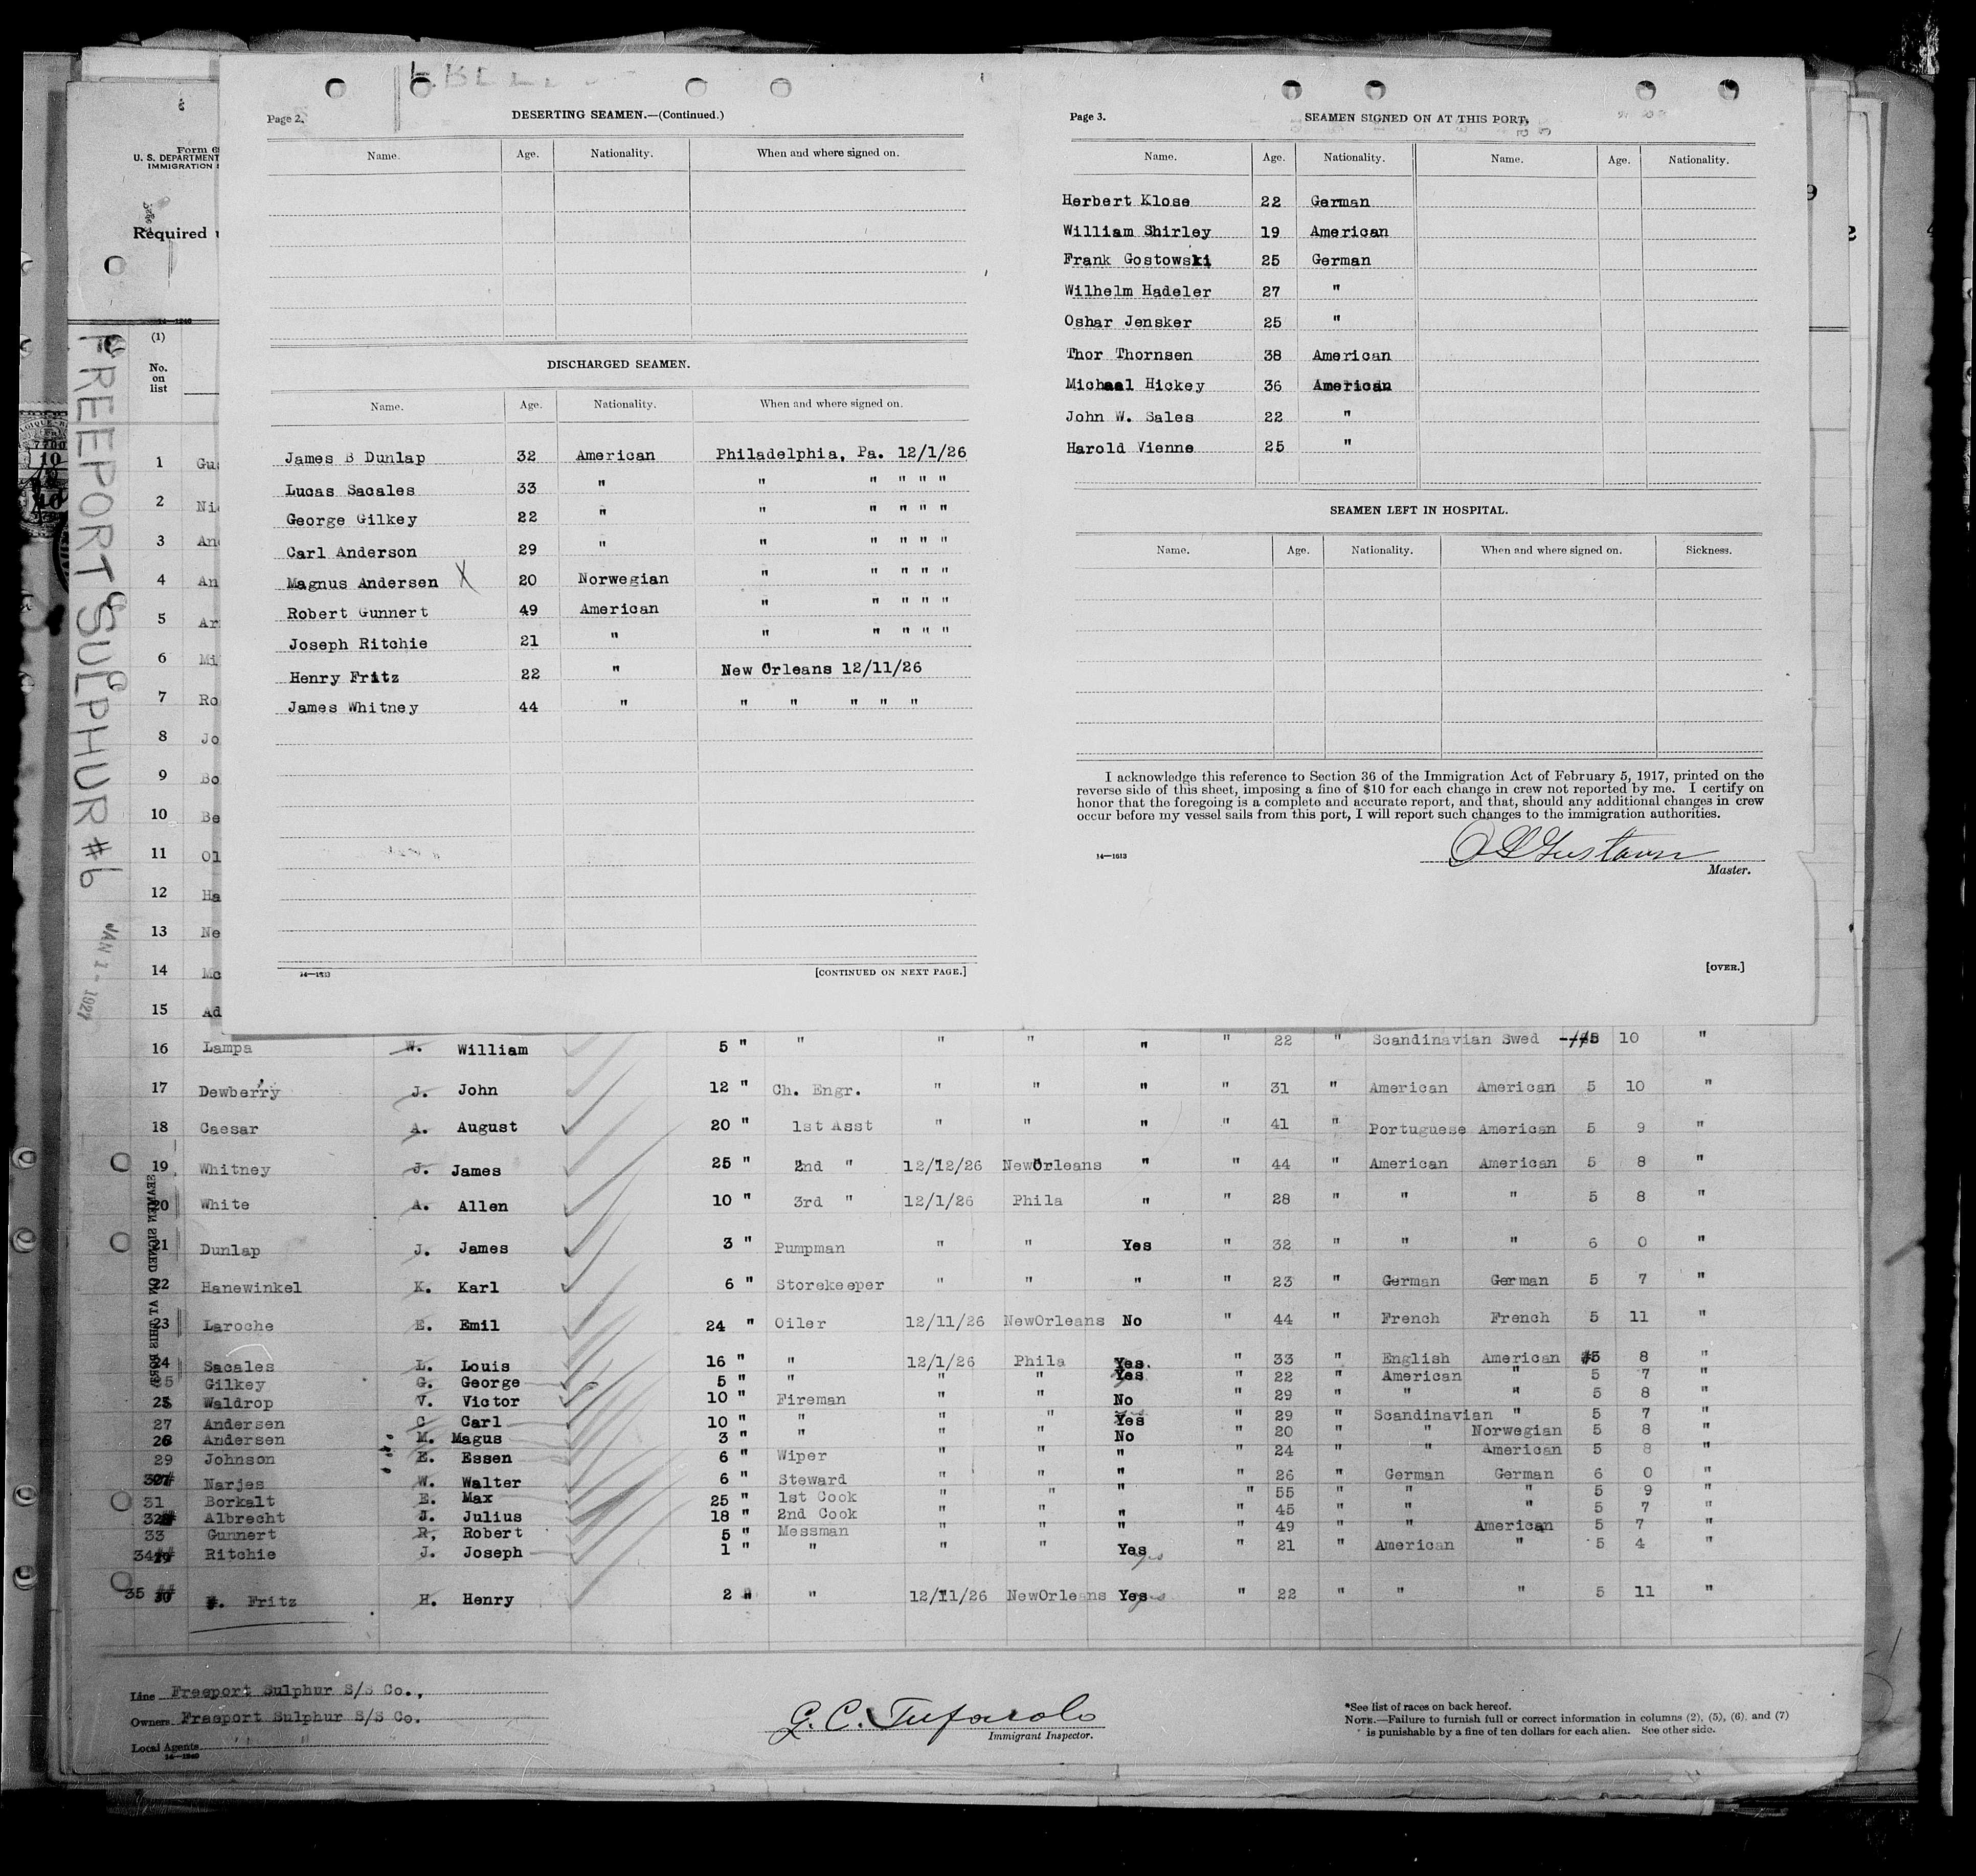 Page 2.
DESERTING SEAMEN.—(Continued.)
Name. Age. Nationality. When and where signed on.
DISCHARGED SEAMEN.
Name. Age. Nationality. When and where signed on.
James B Dunlap 32 American Philadelphia, Pa. 12/1/26
Lucas Sacales 33 " " " " " "
George Gilkey 22 " " " " " "
Carl Anderson 29 " " " " " "
Magnus Andersen X 20 Norwegian " " " " "
Robert Gunnert 49 American " " " " "
Joseph Ritchie 21 " " " " " "
Henry Fritz 22 " New Orleans 12/11/26
James Whitney 44 " " " " " "
14—1613
[CONTINUED ON NEXT PAGE.]
Page 3.
SEAMEN SIGNED ON AT THIS PORT.
Name. Age. Nationality. Name. Age. Nationality.
Herbert Klose 22 German
William Shirley 19 American
Frank Gostowski 25 German
Wilhelm Hadeler 27 "
Oshar Jensker 25 "
Thor Thornsen 38 American
Michael Hickey 36 American
John W. Sales 22 "
Harold Vienne 25 "
SEAMEN LEFT IN HOSPITAL.
Name. Age. Nationality. When and where signed on. Sickness.
I acknowledge this reference to Section 36 of the Immigration Act of February 5, 1917, printed on the
reverse side of this sheet, imposing a fine of $10 for each change in crew not reported by me. I certify on
honor that the foregoing is a complete and accurate report, and that, should any additional changes in crew
occur before my vessel sails from this port, I will report such changes to the immigration authorities.
14—1613
Master.
[OVER.]
Form 6
U. S. DEPARTMENT
IMMIGRATION
Required
14—1240
(1)
No.
on
list
FREEPORT SULPHUR #6
JAN 11 1927
1 Gu
2 Ni
3 An
4 An
5 Ar
6 Mi
7 Ro
8 Jo
9 Bo
10 Be
11 Ol
12 Ha
13 Ne
14 Mc
15 Ad
16 Lampa W. William 5 " " " " " " 22 " Scandinavian Swed 5 10 "
17 Dewberry J. John 12 " Ch. Engr. " " " " 31 " American American 5 10 "
18 Caesar A. August 20 " 1st Asst " " " " 41 " Portuguese American 5 9 "
19 Whitney J. James 25 " 2nd " 12/12/26 NewOrleans " " 44 " American American 5 8 "
20 White A. Allen 10 " 3rd " 12/1/26 Phila " " 28 " " " 5 8 "
21 Dunlap J. James 3 " Pumpman " " Yes " 32 " " " 6 0 "
22 Hanewinkel K. Karl 6 " Storekeeper " " " " 23 " German German 5 7 "
23 Laroche E. Emil 24 " Oiler 12/11/26 NewOrleans No " 44 " French French 5 11 "
24 Sacales L. Louis 16 " " 12/1/26 Phila Yes. " 33 " English American 5 8 "
25 Gilkey G. George 5 " " " " Yes " 22 " American " 5 7 "
Waldrop V. Victor 10 " Fireman " " No " 29 " " " 5 8 "
27 Andersen C Carl 10 " " " " Yes " 29 " Scandinavian " 5 7 "
28 Andersen M. Magus 3 " " " " No " 20 " " Norwegian 5 8 "
29 Johnson E. Essen 6 " Wiper " " " " 24 " " American 5 8 "
30 Narjes W. Walter 6 " Steward " " " " 26 " German German 6 0 "
31 Borkalt E. Max 25 " 1st Cook " " " " 55 " " " 5 9 "
32 Albrecht J. Julius 18 " 2nd Cook " " " " 45 " " " 5 7 "
33 Gunnert R. Robert 5 " Messman " " " " 49 " " American 5 7 "
34 Ritchie J. Joseph 1 " " " " Yes " 21 " American " 5 4 "
35 Fritz H. Henry 2 " " 12/11/26 NewOrleans Yes " 22 " " " 5 11 "
SEAMEN SIGNED ON AT THIS PORT
Line Freeport Sulphur S/S Co.,
Owners Freeport Sulphur S/S Co.
Local Agents " "
14—1240
G. C. Tufarolo
Immigrant Inspector.
*See list of races on back hereof.
NOTE.—Failure to furnish full or correct information in columns (2), (5), (6), and (7)
is punishable by a fine of ten dollars for each alien. See other side.